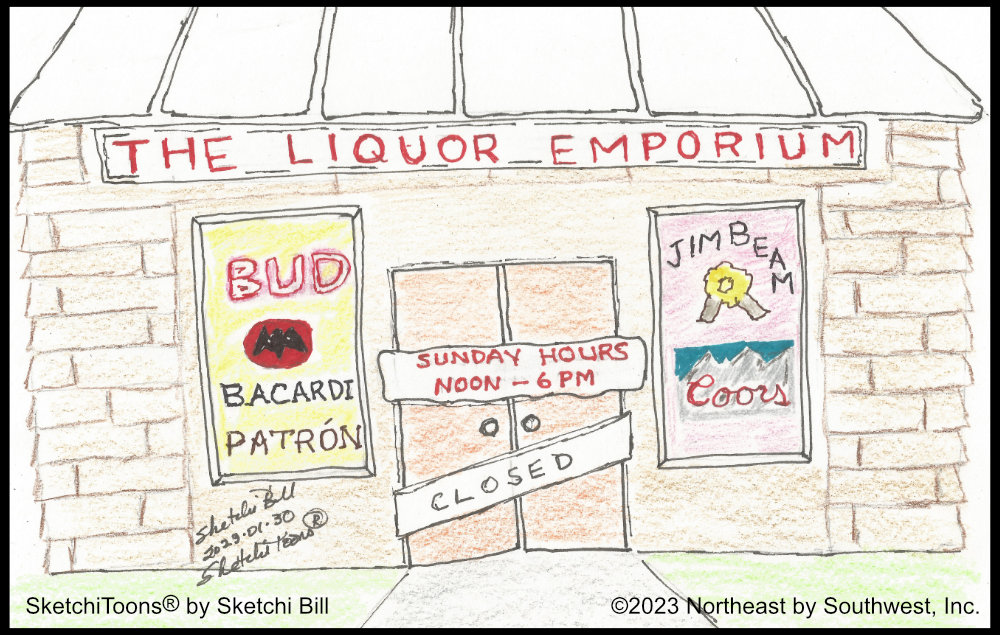 THE LIQUOR EMPORIUM
BUD
BACARDI
PATRÓN
SUNDAY HOURS
NOON - 6 PM
CLOSED
JIM BEAM
Coors
Sketchi Bill
2023.01.30
SketchiToons®
SketchiToons® by Sketchi Bill
©2023 Northeast by Southwest, Inc.